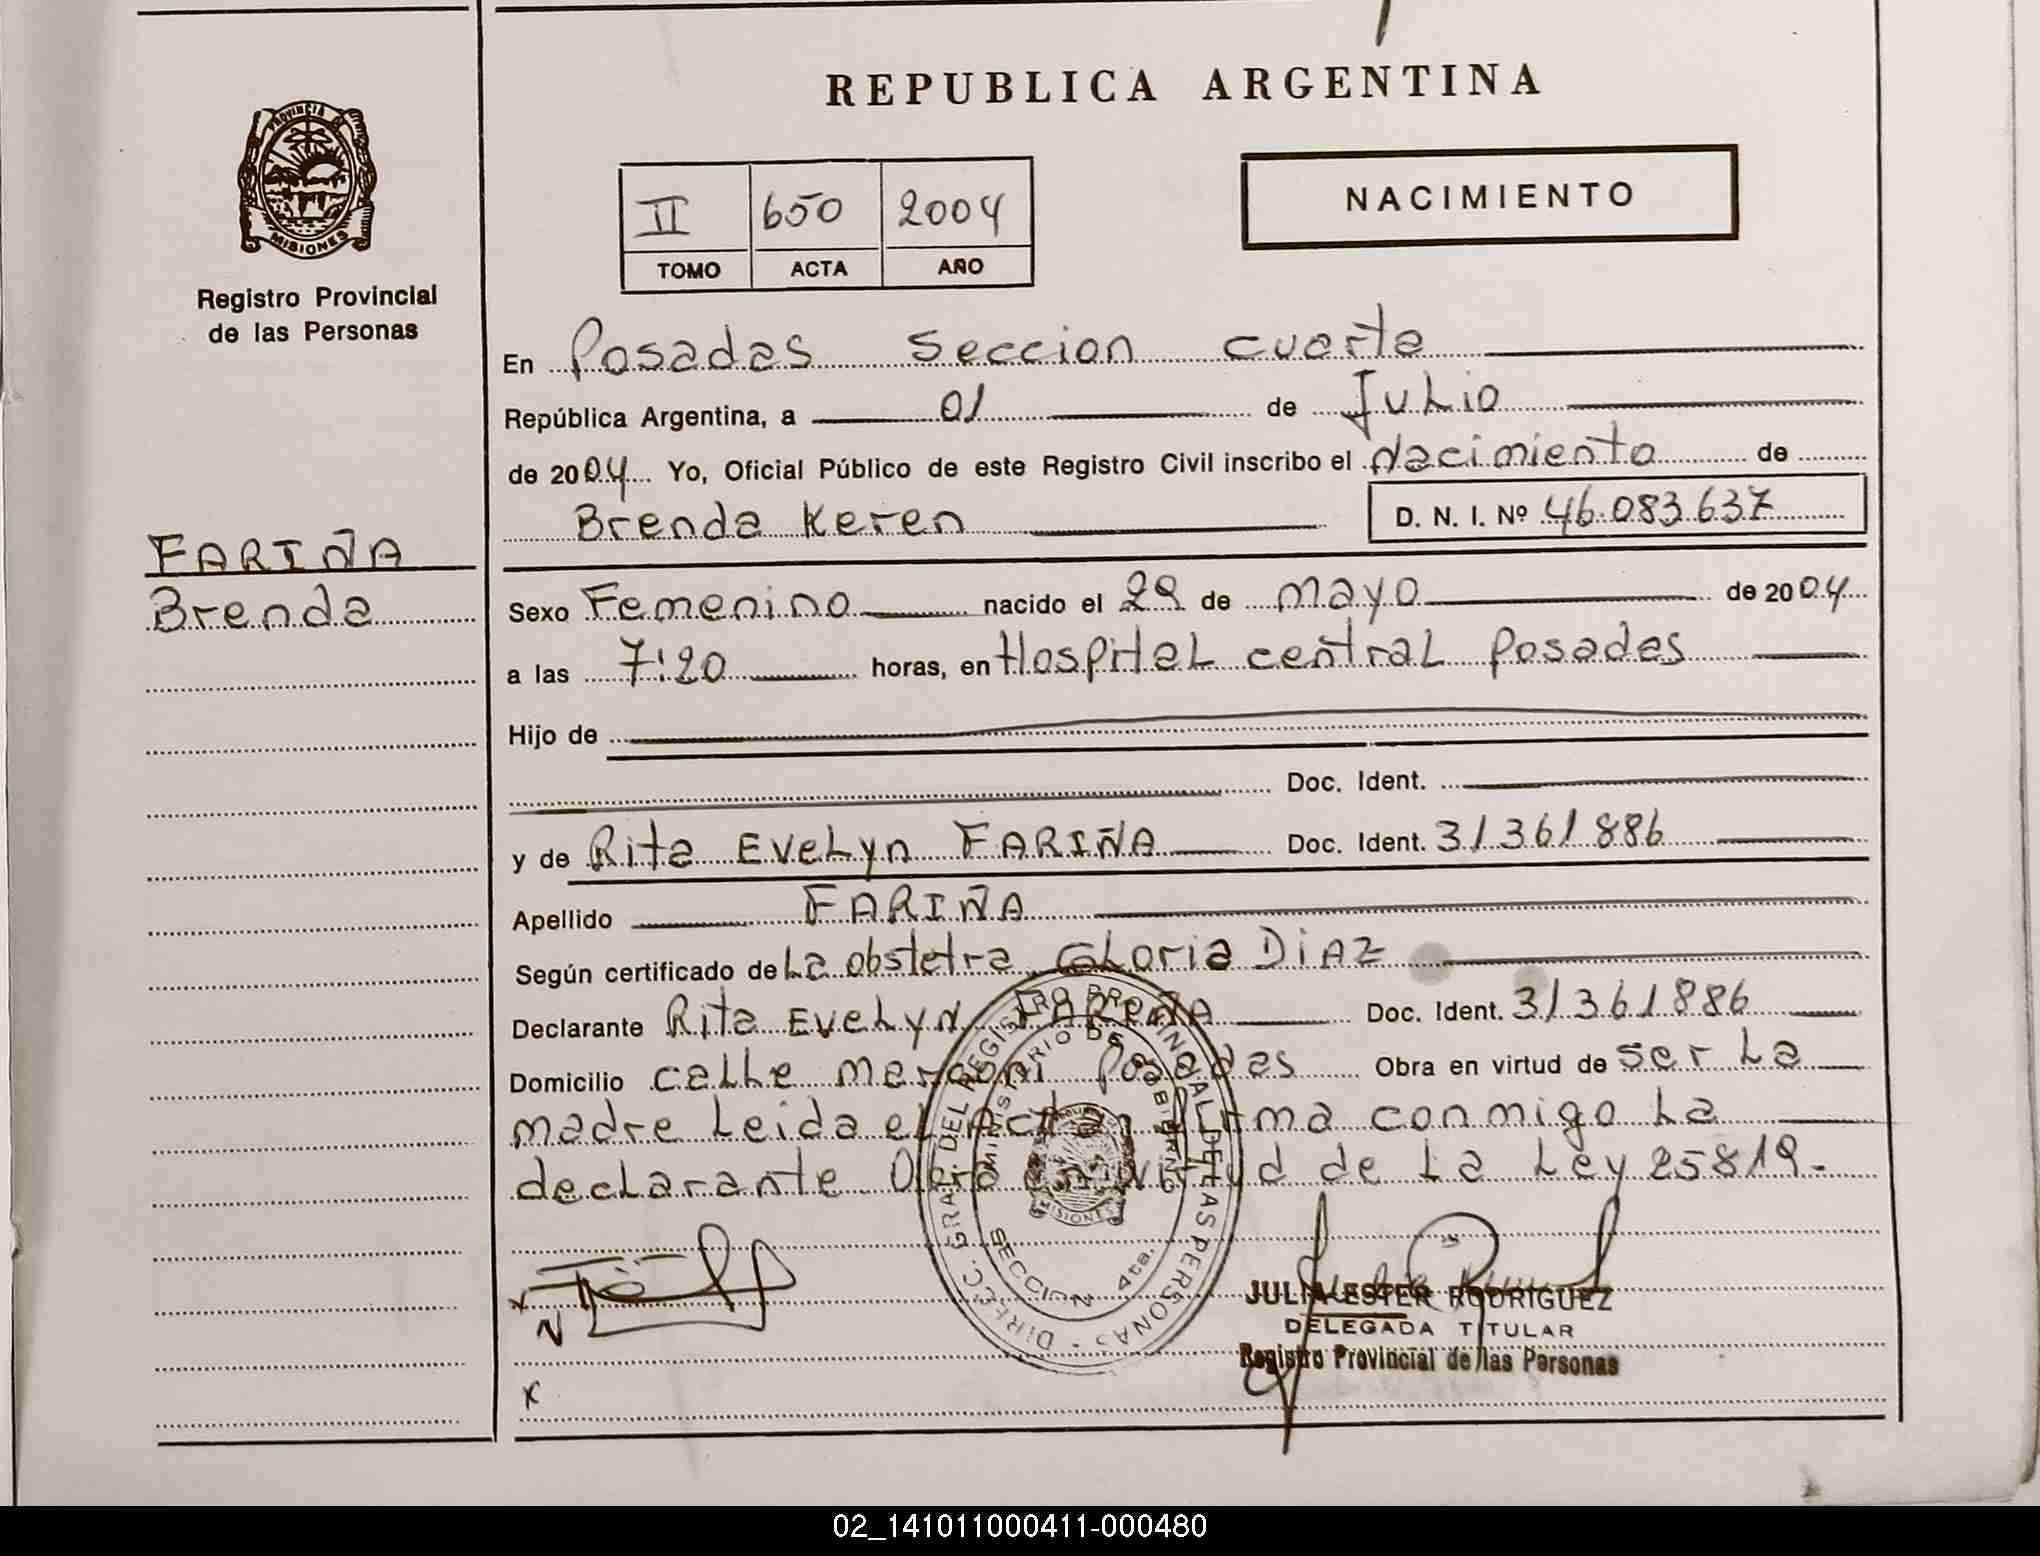 REPUBLICA ARGENTINA
PROVINCIA DE
MISIONES
Registro Provincial
de las Personas
II 650 2004
TOMO ACTA AÑO
NACIMIENTO
En Posadas seccion cuarta
República Argentina, a 01 de Julio
de 2004 Yo, Oficial Público de este Registro Civil inscribo el nacimiento de
Brenda Keren D. N. I. Nº 46.083.637
FARIÑA
Brenda
Sexo Femenino nacido el 29 de mayo de 2004
a las 7:20 horas, en Hospital central Posadas
Hijo de
Doc. Ident.
y de Rita Evelyn FARIÑA Doc. Ident. 31361886
Apellido FARIÑA
Según certificado de La obstetra Gloria DIAZ
Declarante Rita Evelyn FARIÑA Doc. Ident. 31361886
Domicilio calle marconi Posadas Obra en virtud de ser La
madre Leida el Acta Firma conmigo La
declarante Obra en virtud de La Ley 25819.-
DIRECC. GRAL. DEL REGISTRO PROVINCIAL DE LAS PERSONAS
MINISTERIO DE GOBIERNO
MISIONES
SECCION 4ta.
JULIA ESTER RODRIGUEZ
DELEGADA TITULAR
Registro Provincial de las Personas
x
N
x
02_141011000411-000480